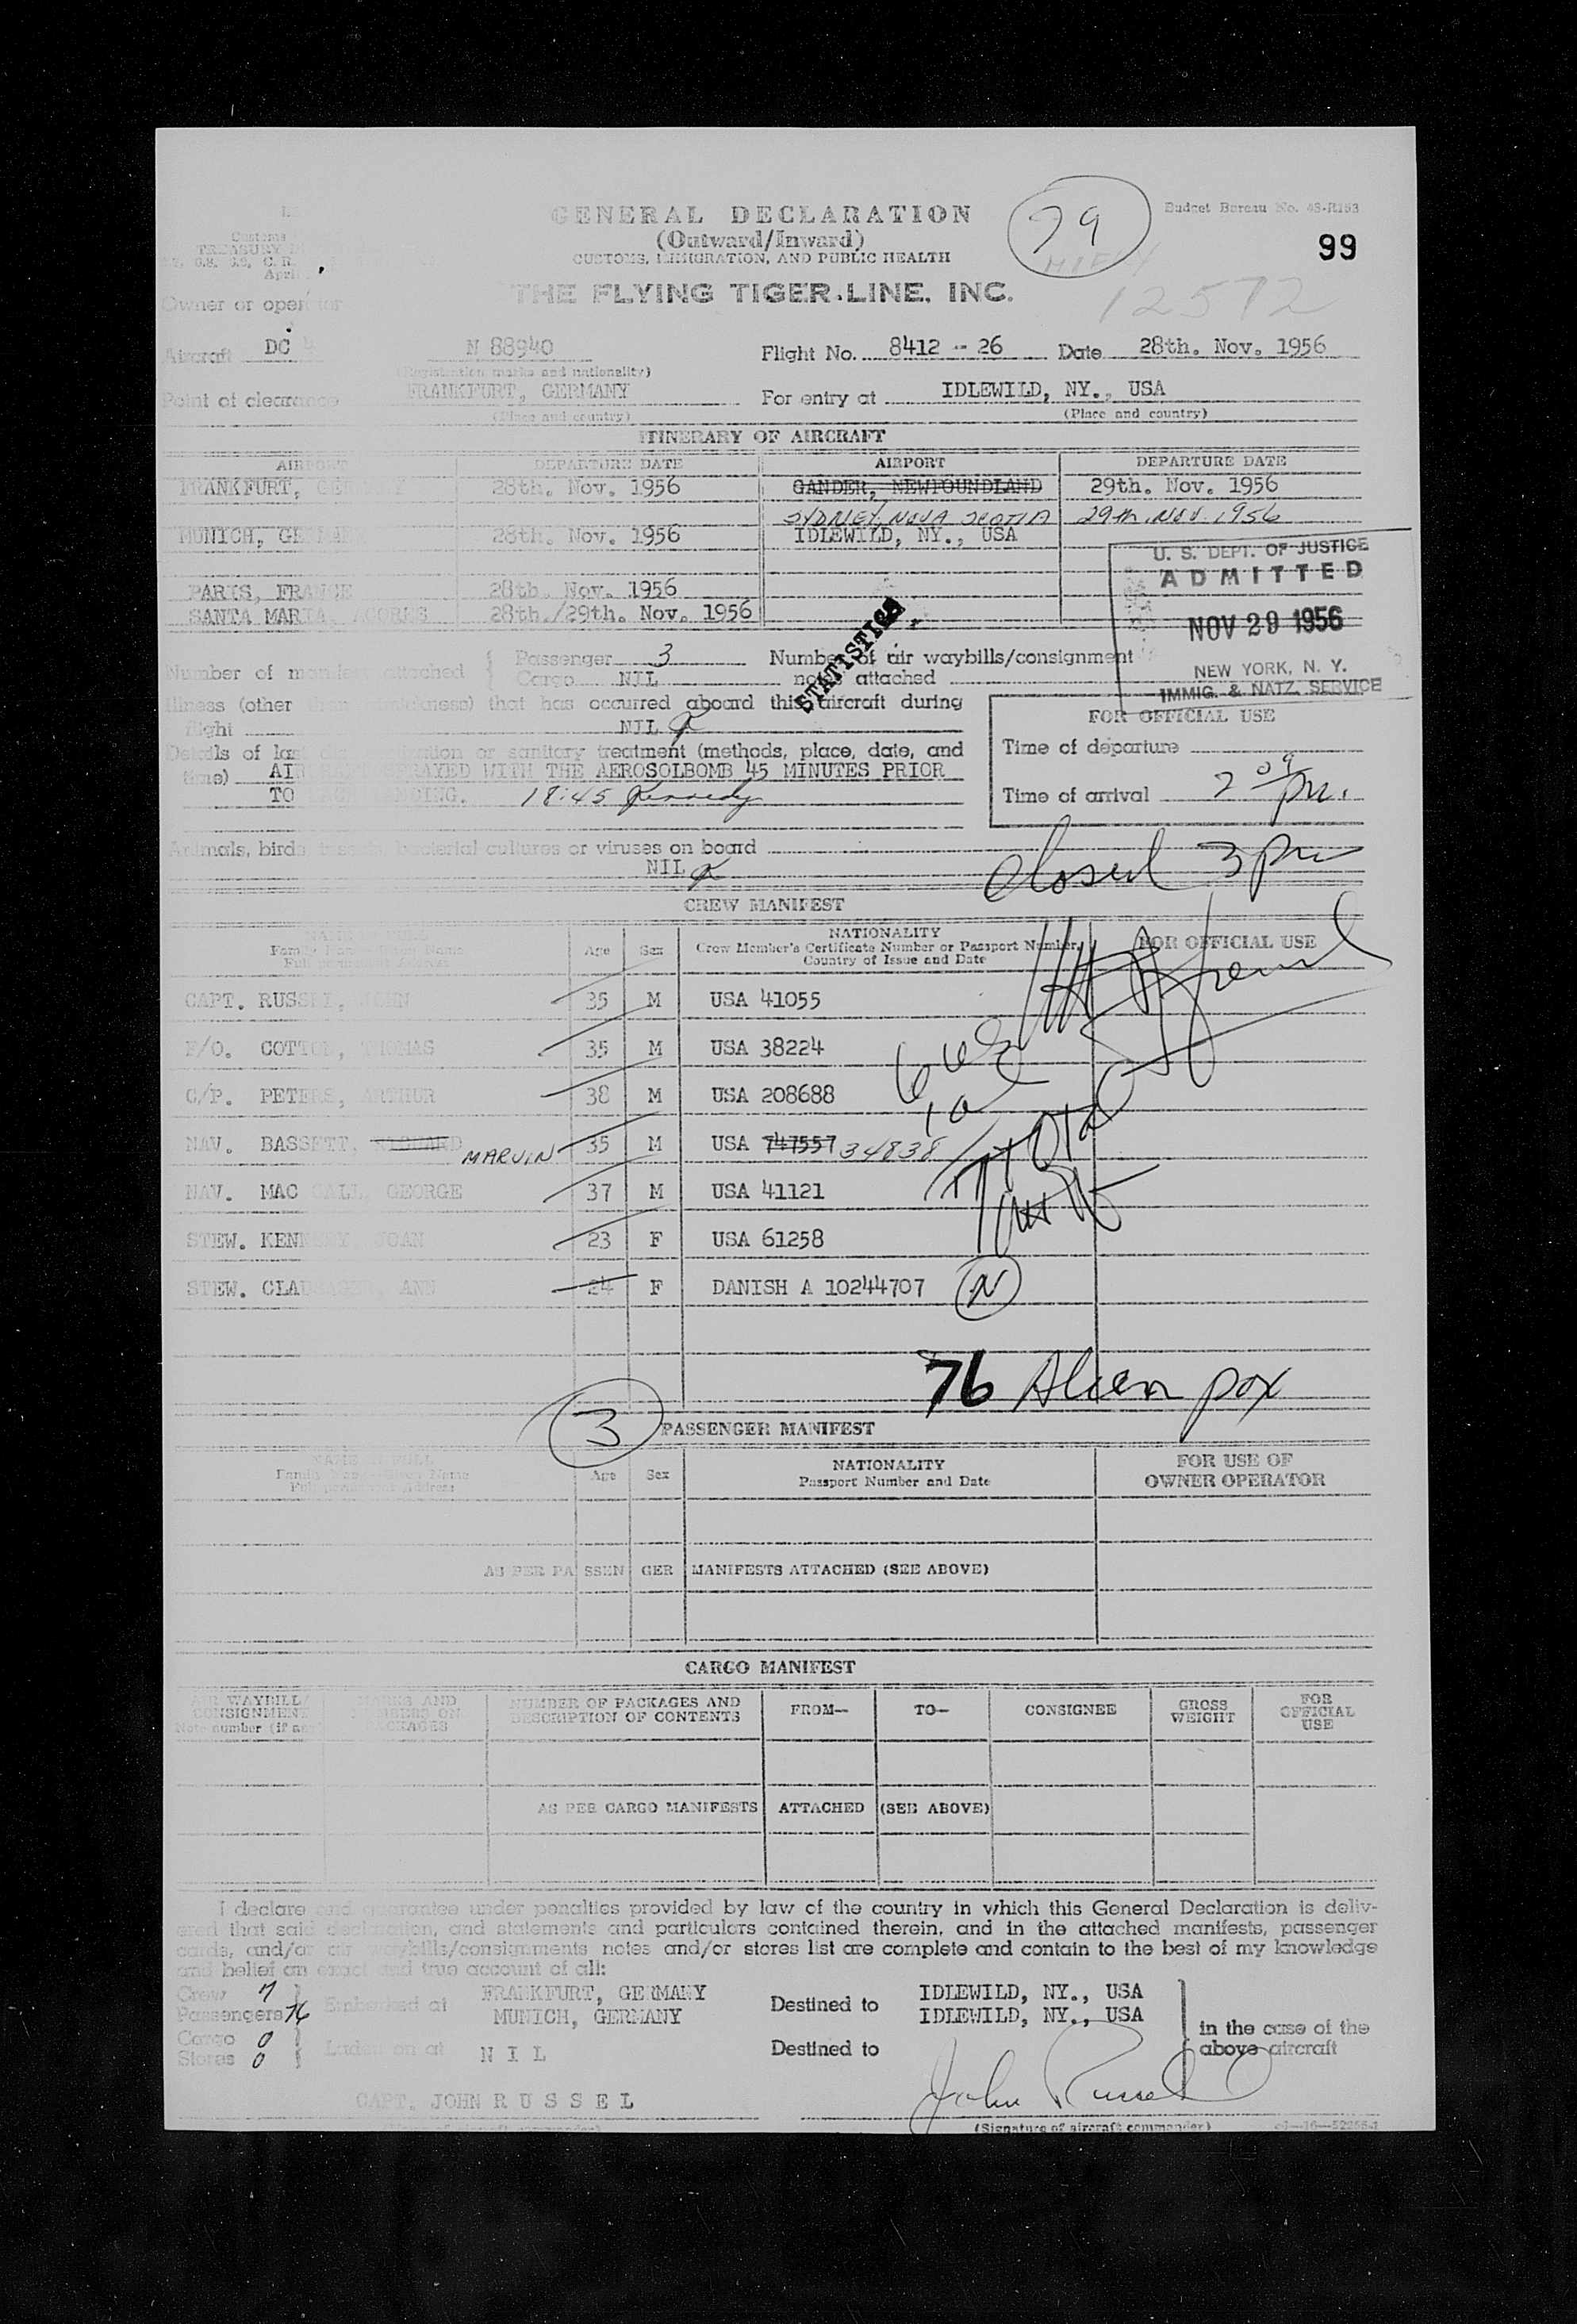 GENERAL DECLARATION
(Outward/Inward)
CUSTOMS, IMMIGRATION, AND PUBLIC HEALTH
79
Budget Bureau No. 48-R153
99
12572
Customs
TREASURY
April
Owner or operator
THE FLYING TIGER LINE, INC.
Aircraft DC
N 88940
(Registration marks and nationality)
Flight No. 8412 - 26 Date 28th. Nov. 1956
Point of clearance FRANKFURT, GERMANY
(Place and country)
For entry at IDLEWILD, NY., USA
(Place and country)
ITINERARY OF AIRCRAFT
AIRPORT DEPARTURE DATE AIRPORT DEPARTURE DATE
FRANKFURT, GERMANY 28th. Nov. 1956 GANDER, NEWFOUNDLAND 29th. Nov. 1956
SYDNEY, NOVA SCOTIA 29th. NOV. 1956
MUNICH, GERMANY 28th. Nov. 1956 IDLEWILD, NY., USA
PARIS, FRANCE 28th. Nov. 1956
SANTA MARIA, ACORES 28th./29th. Nov. 1956
U. S. DEPT. OF JUSTICE
ADMITTED
NOV 29 1956
NEW YORK, N. Y.
IMMIG. & NATZ. SERVICE
STATISTICS
Number of manifests attached { Passenger 3
Cargo NIL
Number of air waybills/consignment
notes attached
Illness (other than airsickness) that has occurred aboard this aircraft during
flight NIL
Details of last disinsectization or sanitary treatment (methods, place, date, and
time) AIRCRAFT SPRAYED WITH THE AEROSOLBOMB 45 MINUTES PRIOR
TO EACH LANDING. 18:45 Kennedy
FOR OFFICIAL USE
Time of departure
Time of arrival 2 09 pm.
Animals, birds, insects, bacterial cultures or viruses on board
NIL
Closed 3 pm
CREW MANIFEST
Age Sex
NATIONALITY
Crew Member's Certificate Number or Passport Number,
Country of Issue and Date
FOR OFFICIAL USE
CAPT. RUSSEL, JOHN 35 M USA 41055
F/O. COTTON, THOMAS 35 M USA 38224
C/P. PETERS, ARTHUR 38 M USA 208688
NAV. BASSETT, MARVIN 35 M USA 747557 34838
NAV. MAC CALL, GEORGE 37 M USA 41121
STEW. KENNEDY, JOAN 23 F USA 61258
STEW. CLAUSAGER, ANN 24 F DANISH A 10244707 N
76 Alien pax
3
PASSENGER MANIFEST
NAME IN FULL
Family Name—Given Name
Full permanent Address
Age Sex
NATIONALITY
Passport Number and Date
FOR USE OF
OWNER OPERATOR
AS PER PASSENGER MANIFESTS ATTACHED (SEE ABOVE)
CARGO MANIFEST
AIR WAYBILL/
CONSIGNMENT
Note number (if any)
MARKS AND
NUMBERS ON
PACKAGES
NUMBER OF PACKAGES AND
DESCRIPTION OF CONTENTS
FROM—
TO—
CONSIGNEE
GROSS
WEIGHT
FOR
OFFICIAL
USE
AS PER CARGO MANIFESTS ATTACHED (SEE ABOVE)
I declare and guarantee under penalties provided by law of the country in which this General Declaration is deliv-
ered that said declaration, and statements and particulars contained therein, and in the attached manifests, passenger
cards, and/or air waybills/consignments notes and/or stores list are complete and contain to the best of my knowledge
and belief an exact and true account of all:
Crew 7
Passengers 76
Embarked at FRANKFURT, GERMANY
MUNICH, GERMANY
Destined to IDLEWILD, NY., USA
IDLEWILD, NY., USA
Cargo 0
Stores 0
Laden on at N I L
Destined to
in the case of the
above aircraft
CAPT. JOHN R U S S E L
John Russel
(Signature of aircraft commander)